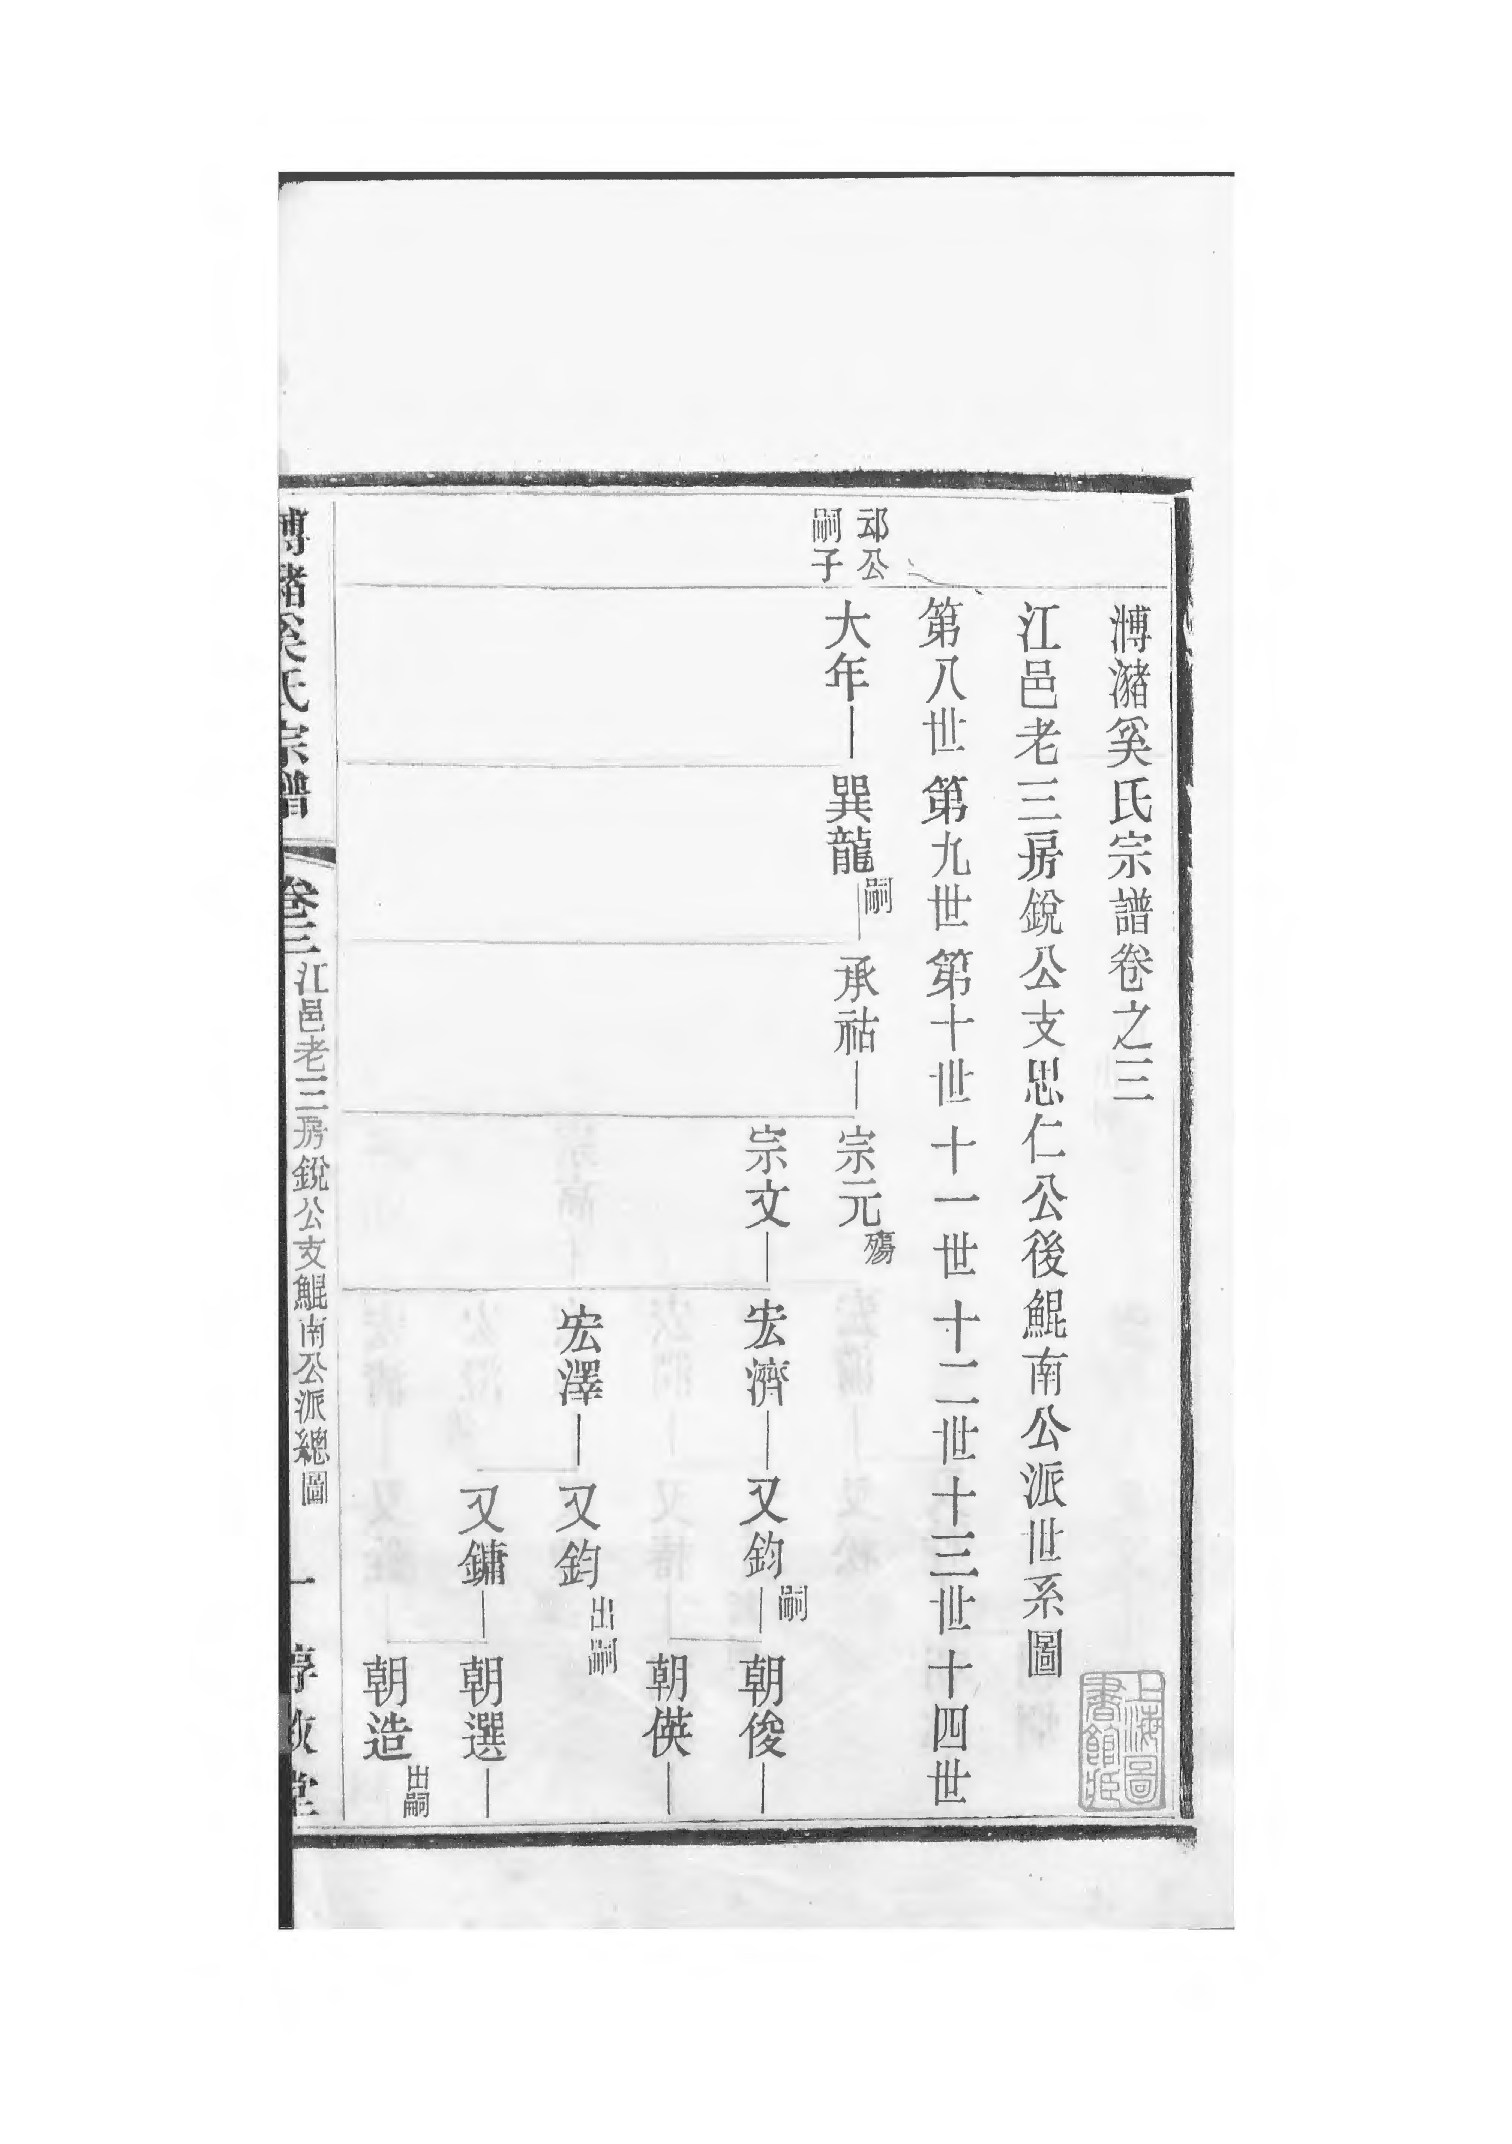 溥瀦奚氏宗譜卷之三
江邑老三房銳公支思仁公後鯤南公派世系圖
第八世 第九世 第十世 十一世 十二世 十三世 十四世
邧公
嗣子
大年 巽龍 嗣 承祜 宗元 殤
宗文 宏濟 又鈞 嗣 朝俊
朝偀
宏澤 又鈞 出嗣
又鏞 朝選
朝造 出嗣
溥瀦奚氏宗譜 卷三 江邑老三房銳公支鯤南公派總圖 一 惇敘堂
上海圖書館藏